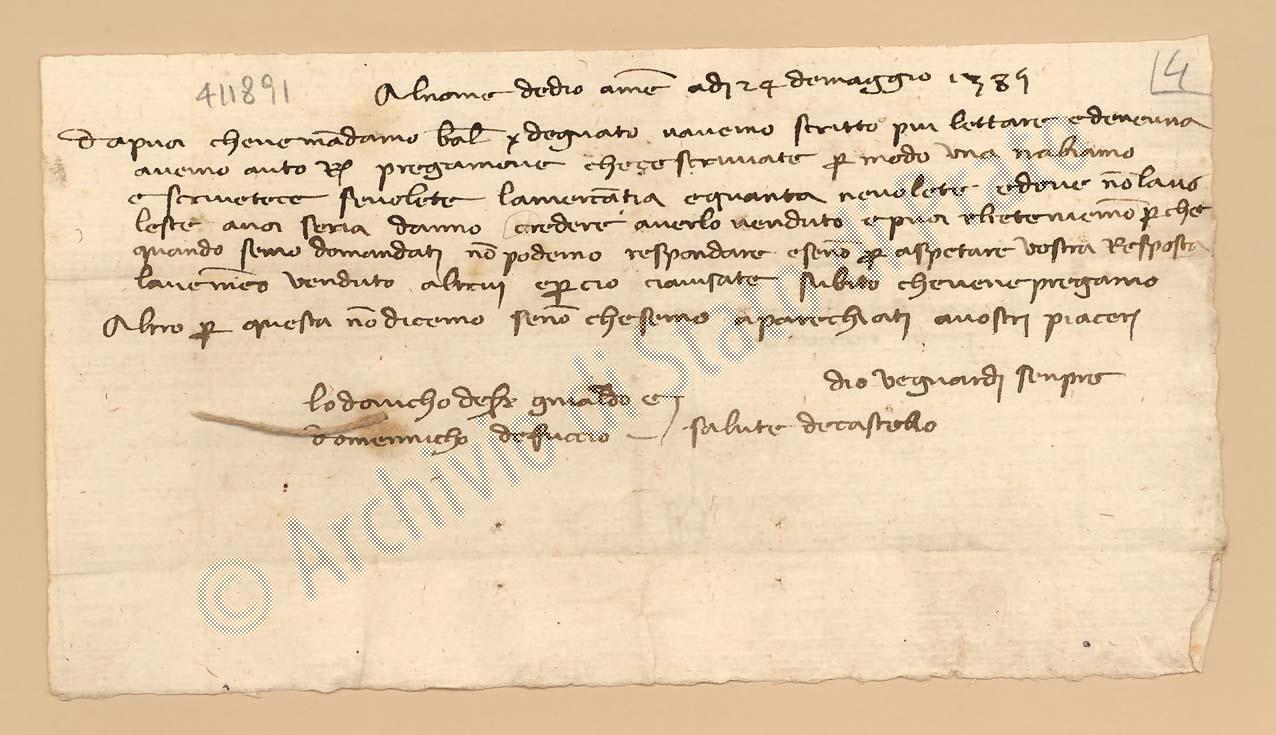 411891
4
Al nome de dio amē adi 24 de maggio 1389
dapuoi cheve mādamo bal deguato navemo scritto piu lettare e deneuna
avemo auto R pregamove che ce scrivate p modo una nabiamo
e scrivetece sevolete lamercātia e quanta nevolete e dove nō lavo
leste avoi seria danno credere averlo venduto e poi rbietenemō p che
quando semo domandati nō podemo respondare e senō p aspetare vostra Resposta
lavemmo venduto altrui e p cio ciavisate subito che vene pregamo
Altro p questa nō dicemo senō che semo aparechiati avostri piaceri
dio ve guardi senpre
lodovicho de gniāldo e
domenicho de succio salute decastello
© Archivio di Stato di